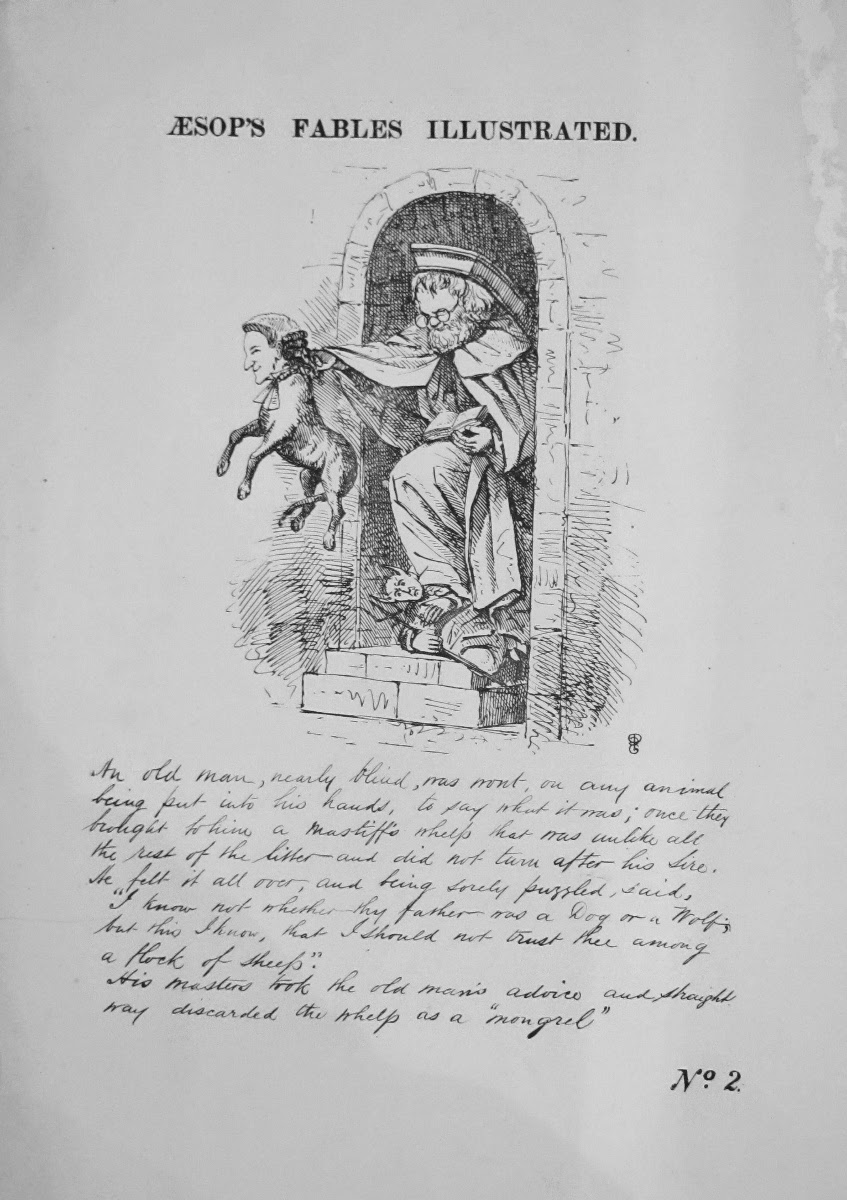 ÆSOP'S FABLES ILLUSTRATED.
An old man, nearly blind, was wont, on any animal
being put into his hands, to say what it was; once they
brought to him a mastiff's whelp that was unlike all
the rest of the litter and did not turn after his sire.
He felt it all over, and being sorely puzzled, said,
"I know not whether thy father was a Dog or a Wolf;
but this I know, that I should not trust thee among
a flock of sheep".
His masters took the old man's advice and straight
way discarded the whelp as a "mongrel"
No. 2.